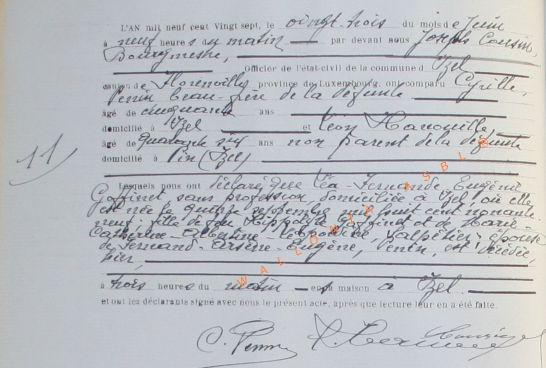 L'AN mil neuf cent Vingt sept, le vingt trois du mois de Juin
à neuf heures du matin par devant nous Joseph Cousin
Bourgmestre,
Officier de l'état-civil de la commune d'Izel
canton de Florenville, province de Luxembourg, ont comparu Cyrille,
Penin beau-père de la défunte
âgé de cinquante ans
domicilié à Izel et Léon
âgé de Quarante six ans non parent de la défunte
domicilié à Pin (Izel)
11
Lesquels nous ont déclaré que Léa-Fernande, Eugénie
Goffinet, sans profession domiciliée à Izel, où elle
est née le quinze septembre mil huit cent nonante
neuf, fille de feu Hippolyte Goffinet et de Marie-
Catherine-Albertine, Léopoldine, épouse
de Fernand-Arsène-Eugène, Penin, est décédée
hier,
à trois heures du matin en sa maison à Izel.
et ont les déclarants signé avec nous le présent acte, après que lecture leur en a été faite.
C. Penin
WALLONIA ASBL